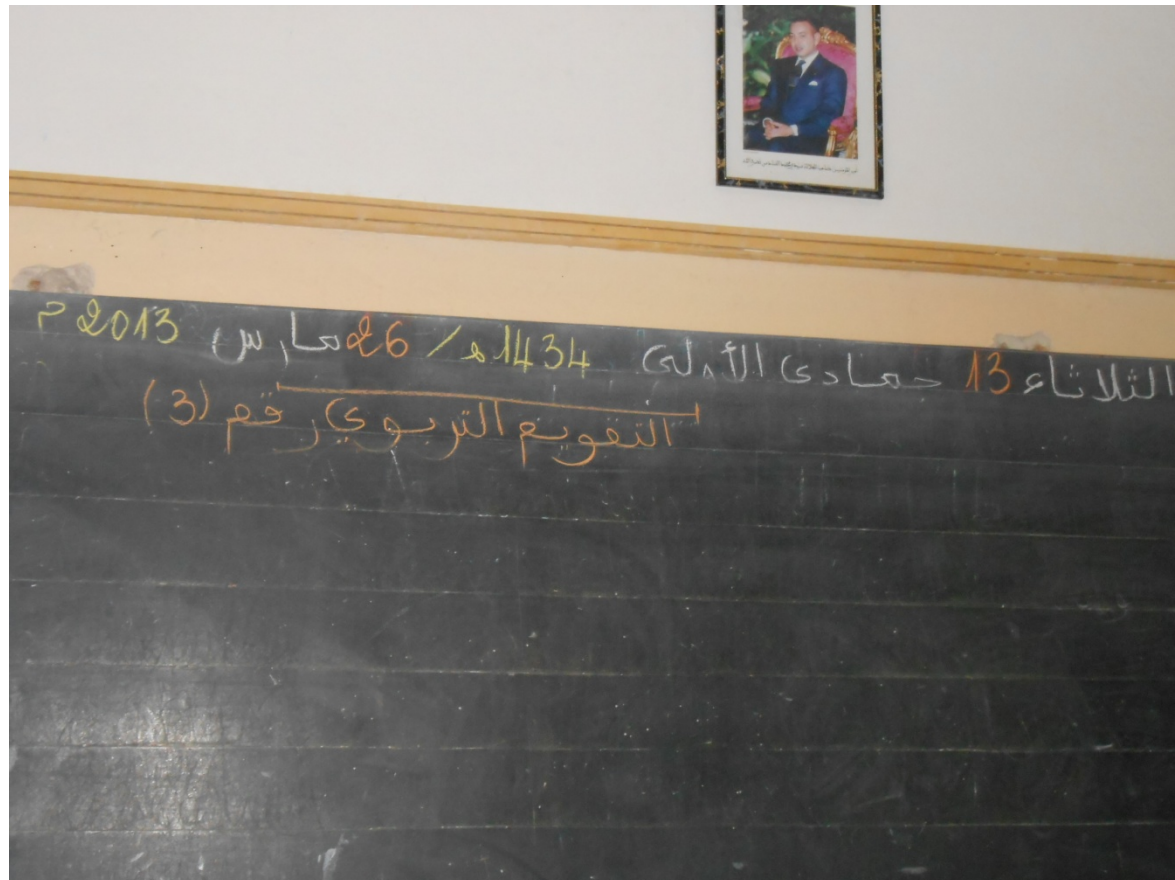 الثلاثاء 13 جمادى الأولى 1434ه / 26 مارس 2013 م
التقويم التربوي رقم (3)